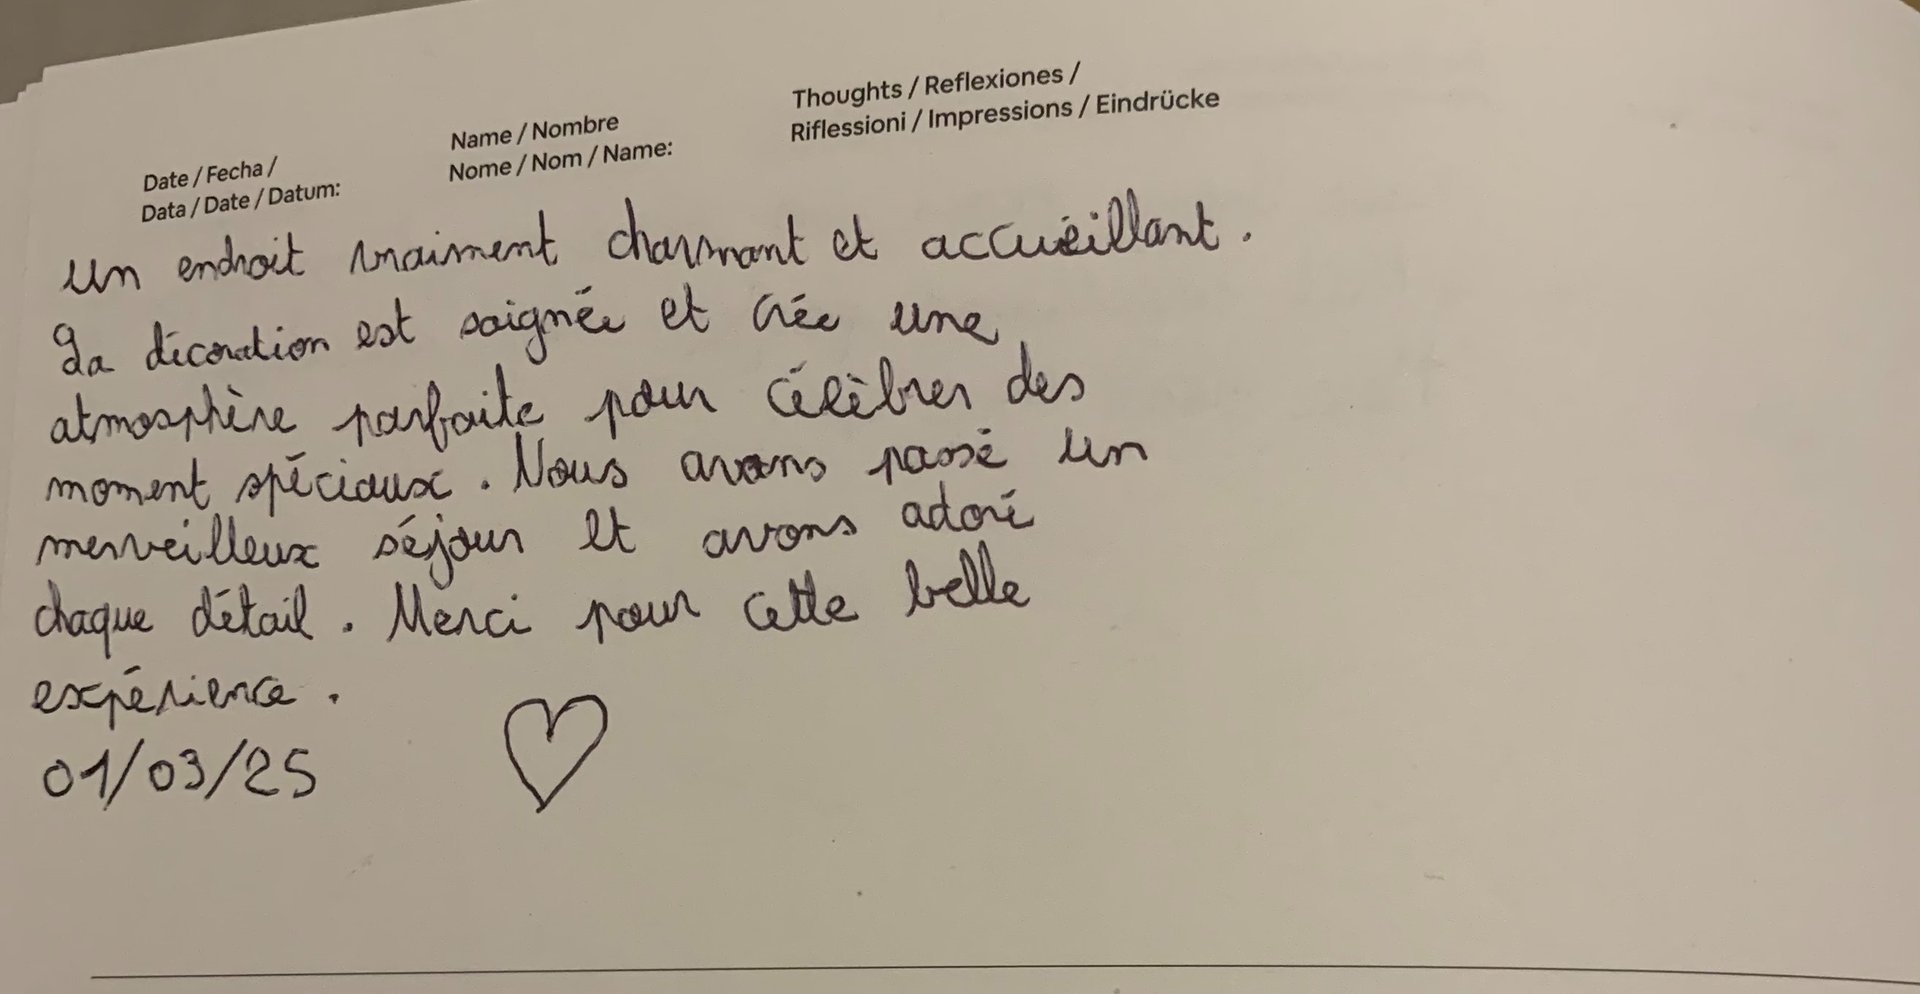 Thoughts / Reflexiones /
Riflessioni / Impressions / Eindrücke
Name / Nombre
Nome / Nom / Name:
Date / Fecha /
Data / Date / Datum:
un endroit vraiment charmant et accuéillant.
La décoration est soignée et crée une
atmosphère parfaite pour célèbrer des
moment spéciaux. Nous avons passé un
merveilleux séjour et avons adoré
chaque détail. Merci pour cette belle
expérience.
01/03/25